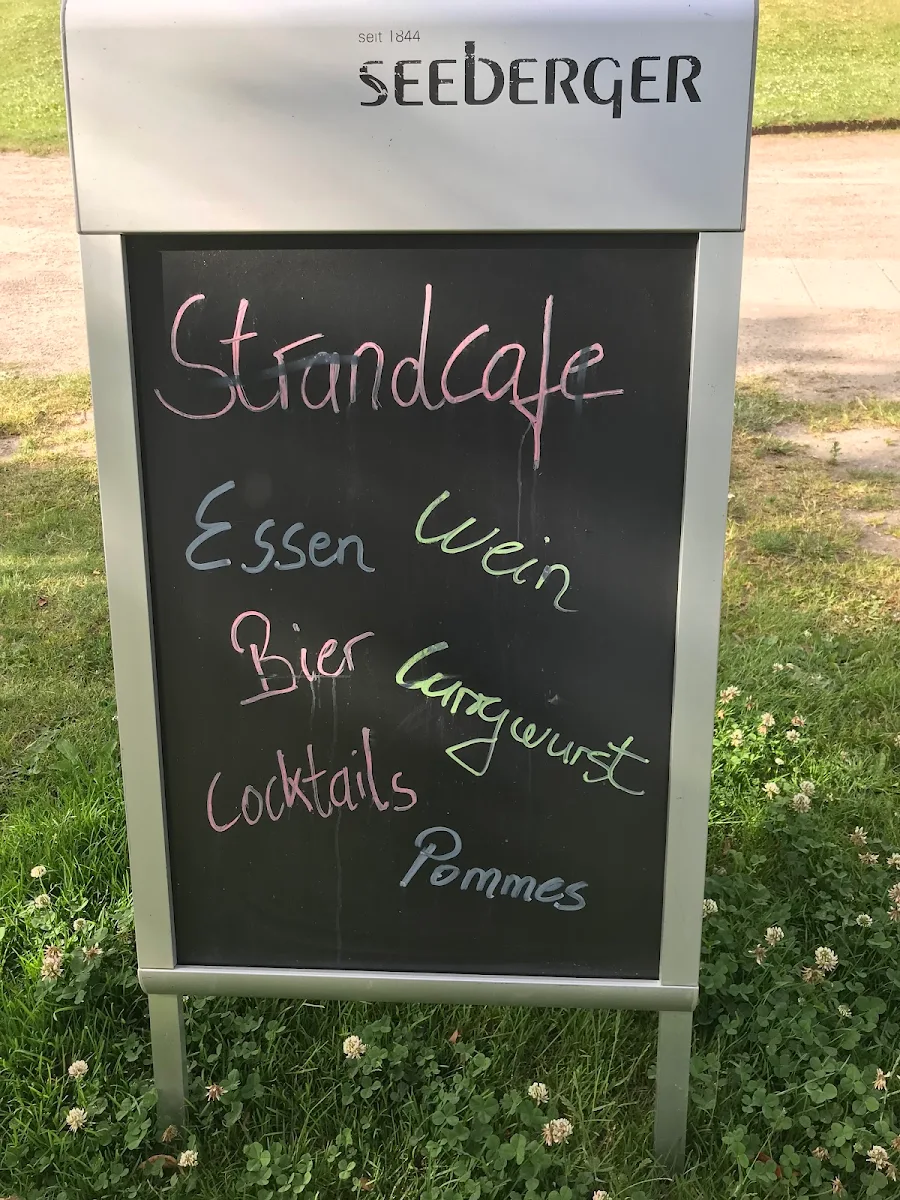 seit 1844
SEEBERGER
Strandcafe
Essen Wein
Bier Currywurst
Cocktails
Pommes